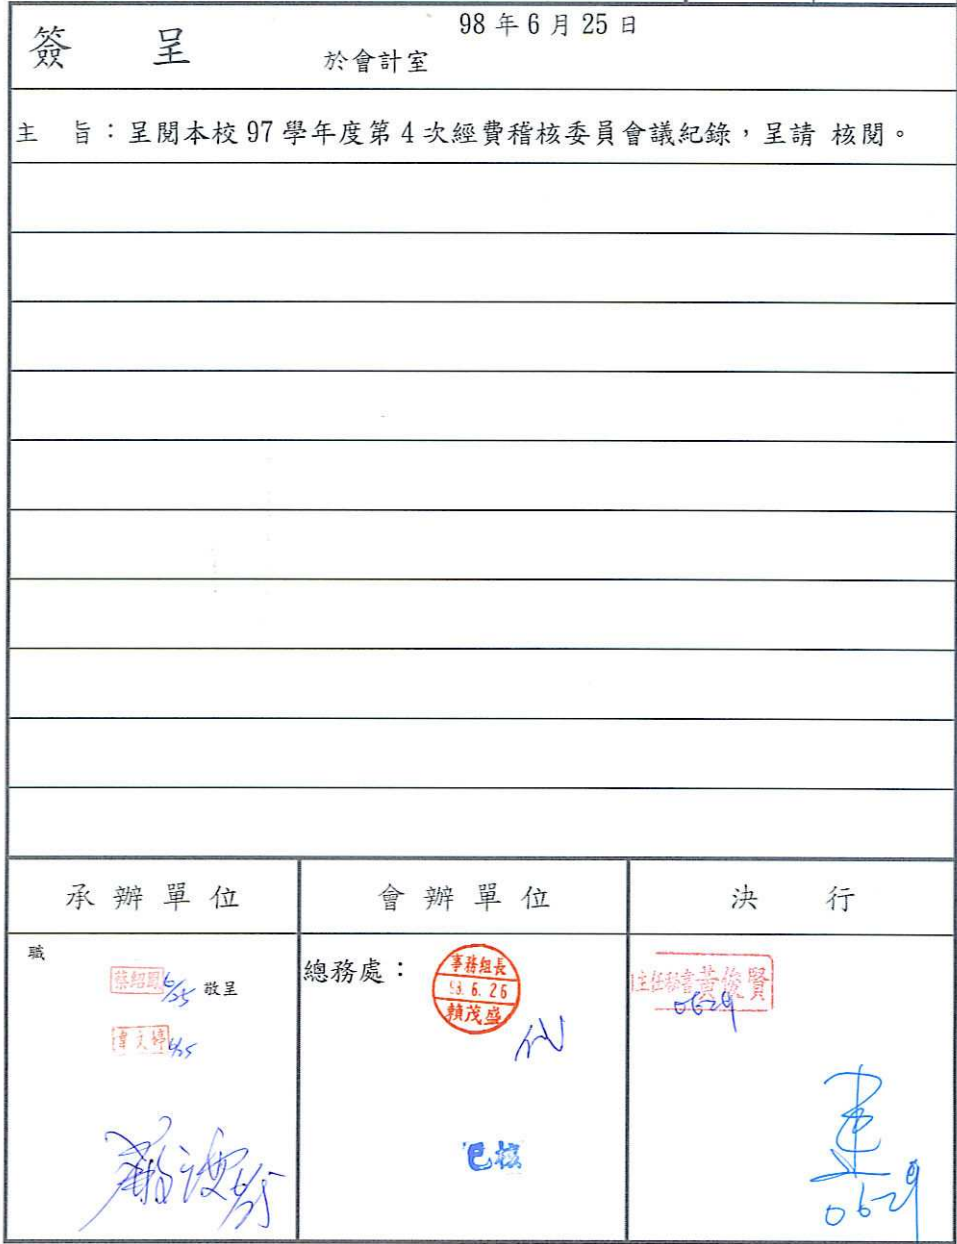 98 年 6 月 25 日
簽 呈
於會計室
主 旨：呈閱本校 97 學年度第 4 次經費稽核委員會議紀錄，呈請 核閱。
承 辦 單 位
會 辦 單 位
決 行
職
6/25 敬呈
6/25
總務處：
事務組長
98. 6. 26
賴茂盛
已核
主任秘書黃俊賢
0629
0629